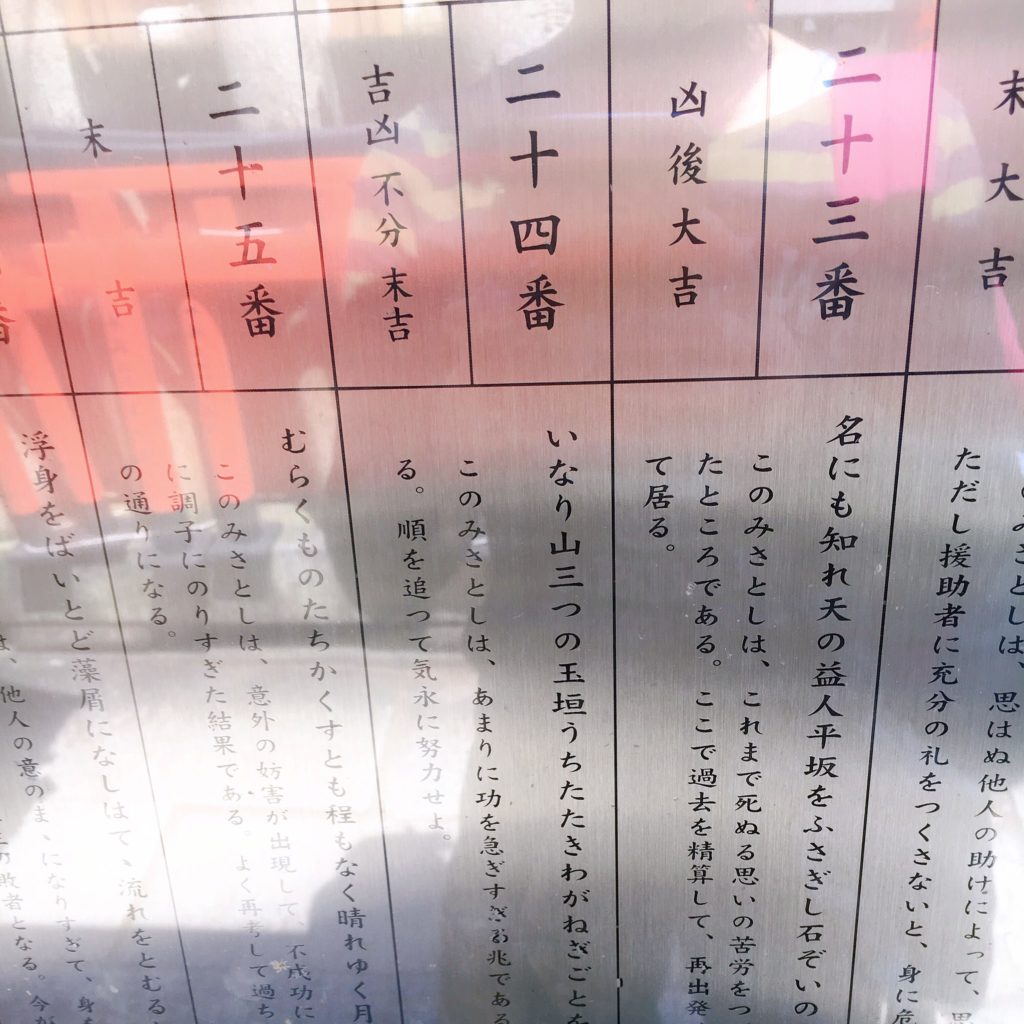 末大吉
のみさとしは、思はぬ他人の助けによって、思
ただし援助者に充分の礼をつくさないと、身に危
二十三番
凶後大吉
名にも知れ天の益人平坂をふさぎし石ぞいの
このみさとしは、これまで死ぬる思いの苦労をつ
たところである。ここで過去を精算して、再出発
て居る。
二十四番
吉凶不分末吉
いなり山三つの玉垣うちたたきわがねぎごとを
このみさとしは、あまりに功を急ぎすぎる兆である
る。順を追つて気永に努力せよ。
二十五番
末吉
むらくものたちかくすとも程もなく晴れゆく月
このみさとしは、意外の妨害が出現して、不成功に
に調子にのりすぎた結果である。よく再考して過ち
の通りになる。
番
浮身をばいとど藻屑になしはてゝ流れをとむる
は、他人の意のまゝになりすぎて、身を
の敗者となる。今が